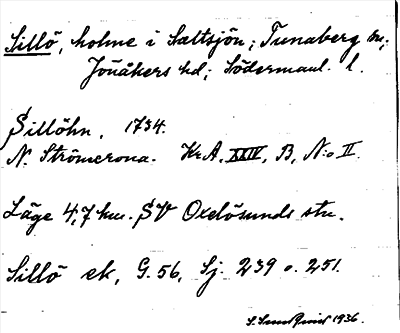 Sillö, holme i Saltsjön; Tunaberg sn;
Jönåkers hd; Södermanl. l.
Sillöhn, 1734.
N. Strömcrona. Kr.A, XXIV, B, N:o II.
Läge 4,7 km. SV Oxelösunds stn.
Sillö ek, G. 56, Sj. 239 o. 251.
1936.